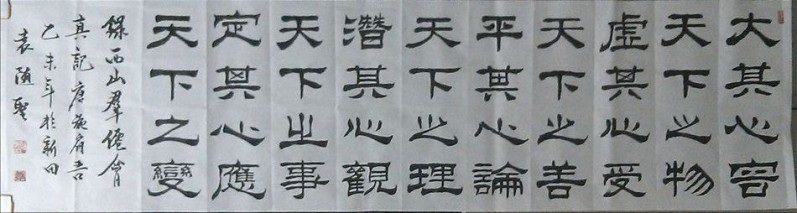 大其心容
天下之物
虛其心受
天下之善
平其心論
天下之理
潛其心觀
天下之事
定其心應
天下之變
錄西山群僊會
真記 唐施肩吾
乙未年於新田
袁随聖